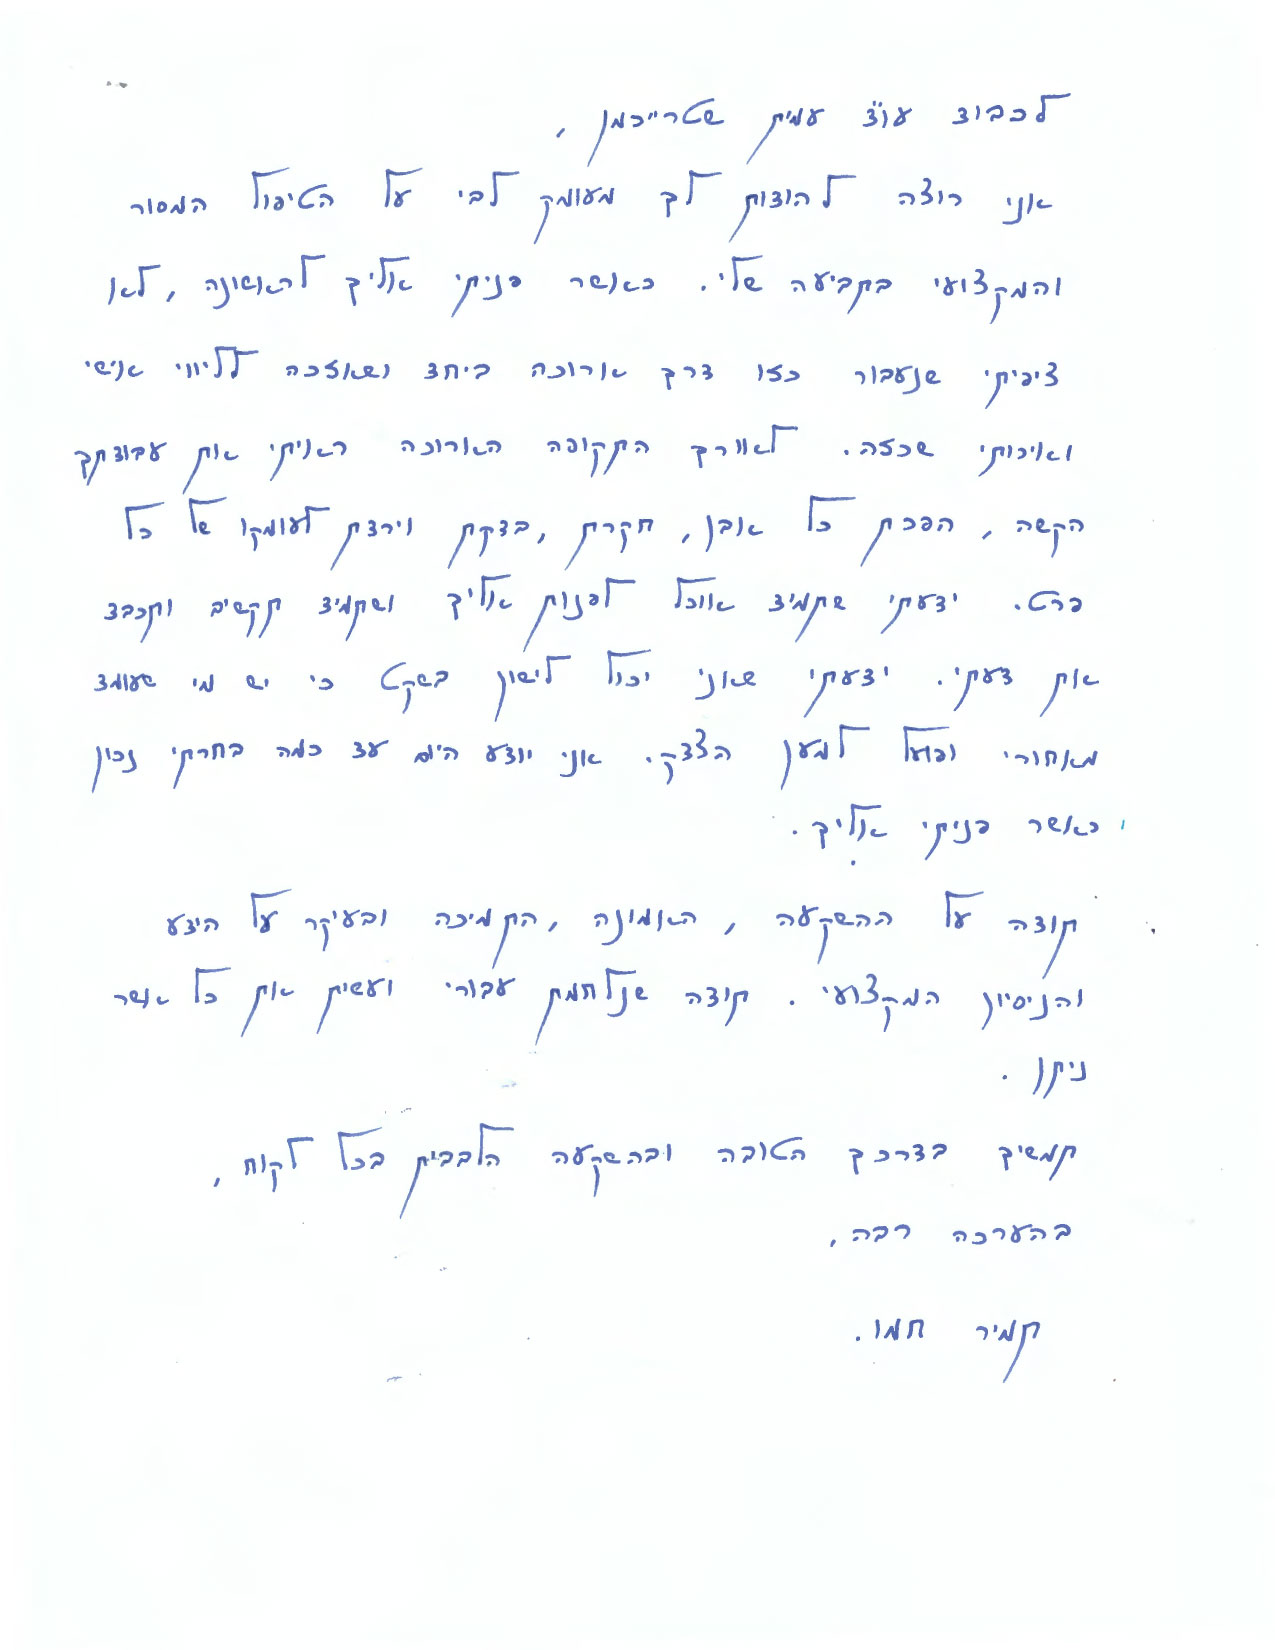 לכבוד עו"ד עמית שטרייכמן,
אני רוצה להודות לך מעומק לבי על הטיפול המסור
והמקצועי בתביעה שלי. כאשר פניתי אליך לראשונה, לא
ציפיתי שנעבור כזו דרך ארוכה ביחד ושאזכה לליווי אישי
ואיכותי שכזה. לאורך התקופה הארוכה ראיתי את עבודתך
הקשה, הפכת כל אבן, חקרת, בדקת וירדת לעומקו של כל
פרט. ידעתי שתמיד אוכל לפנות אליך ושתמיד תקשיב ותכבד
את דעתי. ידעתי שאני יכול לישון בשקט כי יש מי שעומד
מאחורי ופועל למען הצדק. אני יודע היום עד כמה בחרתי נכון
כאשר פניתי אליך.
תודה על ההשקעה, האמונה, התמיכה ובעיקר על הידע
והניסיון המקצועי. תודה שנלחמת עבורי ועשית את כל אשר
ניתן.
תמשיך בדרכך הטובה ובהשקעה הלבבית בכל לקוח,
בהערכה רבה,
תמיר חמו.